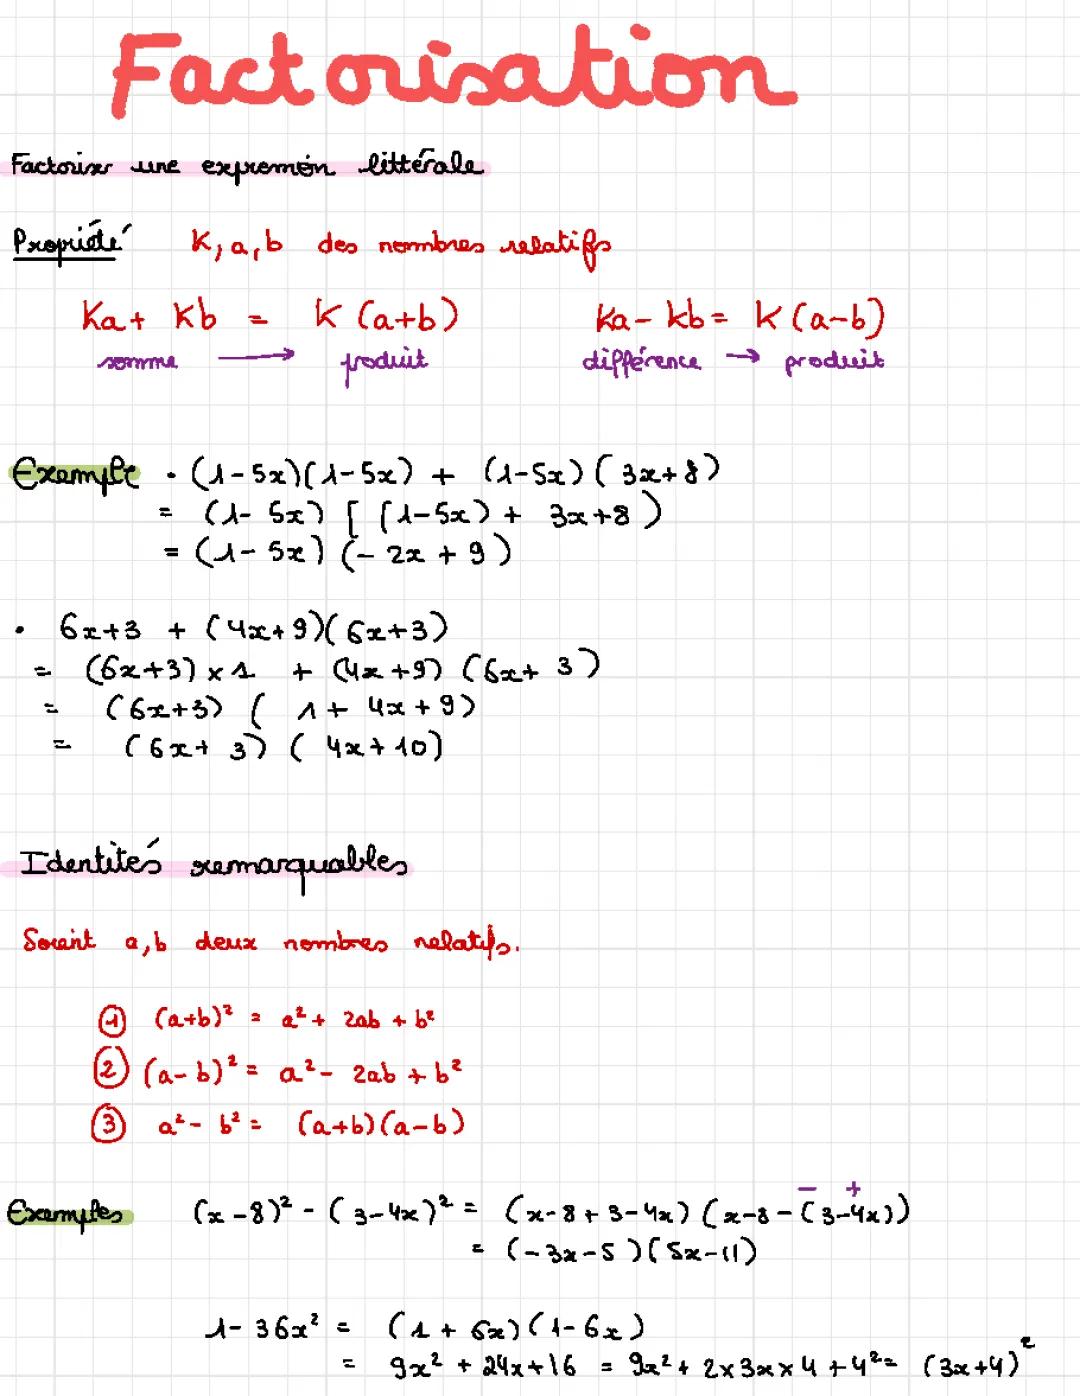 Factorisation
Factoriser une expression littérale
Propriété K, a, b des nombres relatifs
Ka + Kb = K (a+b) Ka - kb = K (a-b)
somme → produit différence → produit
Exemple • (1-5x)(1-5x) + (1-5x)(3x+8)
= (1-5x) [ (1-5x) + 3x+8 )
= (1-5x) (-2x + 9)
• 6x+3 + (4x+9)(6x+3)
= (6x+3) × 1 + (4x+9) (6x+3)
= (6x+3) ( 1 + 4x + 9)
= (6x+3) ( 4x+10)
Identités remarquables
Soient a, b deux nombres relatifs.
① (a+b)² = a² + 2ab + b²
② (a-b)² = a² - 2ab + b²
③ a² - b² = (a+b)(a-b)
− +
Exemples (x-8)² - (3-4x)² = (x-8+3-4x) (x-8-(3-4x))
= (-3x-5)(5x-11)
1-36x² = (1+6x)(1-6x)
= 9x² + 24x+16 = 9x² + 2×3x×4 + 4² = (3x+4)²